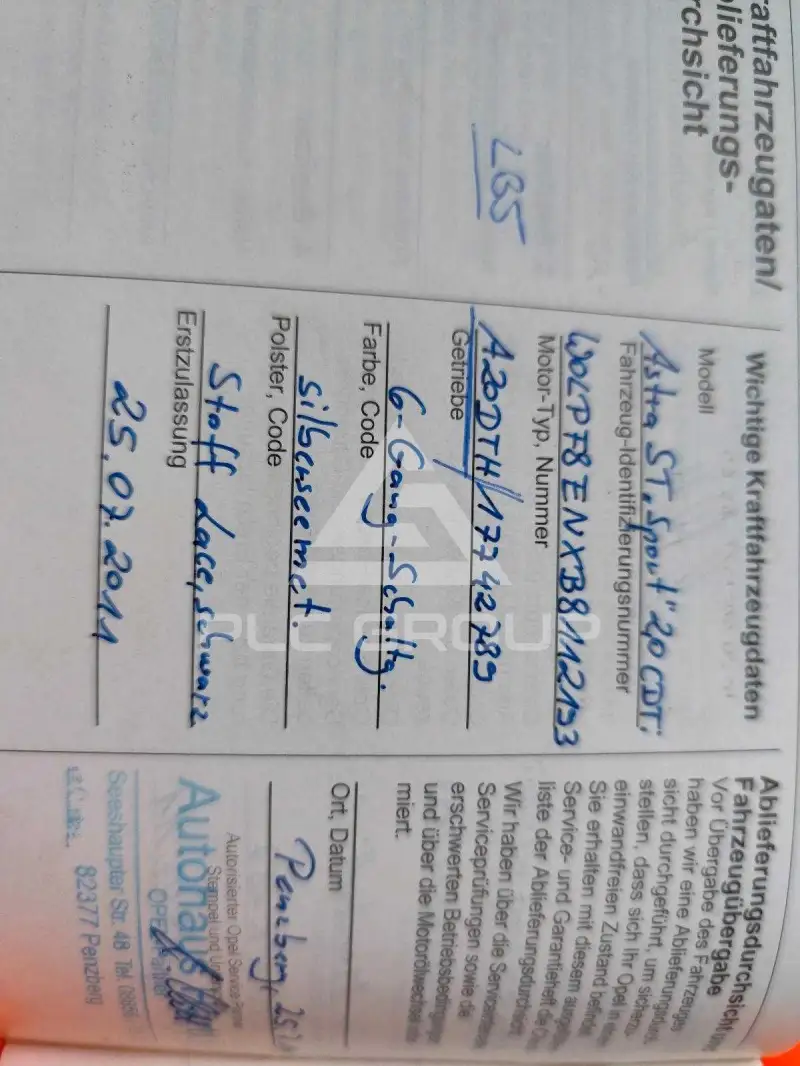 Kraftfahrzeugdaten/
Ablieferungs-
durchsicht
LB5
Wichtige Kraftfahrzeugdaten
Modell
Astra ST „Sport" 2,0 CDTi
Fahrzeug-Identifizierungsnummer
W0LPF8ENXB8112193
Motor-Typ, Nummer
A20DTH/17742789
Getriebe
6-Gang-Schaltg.
Farbe, Code
silberseemet.
Polster, Code
Stoff Lace, schwarz
Erstzulassung
25.07.2011
Ablieferungsdurchsicht
Fahrzeugübergabe
Vor Übergabe des Fahrzeuges
haben wir eine Ablieferungsdurch-
sicht durchgeführt, um sicherzu-
stellen, dass sich Ihr Opel in
einwandfreien Zustand befindet.
Sie erhalten mit diesem
Service- und Garantieheft die
liste der Ablieferungsdurchsicht.
Wir haben über die
Serviceprüfungen sowie die
erschwerten Betriebsbedingungen
und über die Motorölwechsel
miert.
Ort, Datum
Penzberg, 25.
Autorisierter Opel Service
Stempel und
Autohaus
OPEL
Seeshaupter Str. 48 Tel.
82377 Penzberg
PLC GROUP